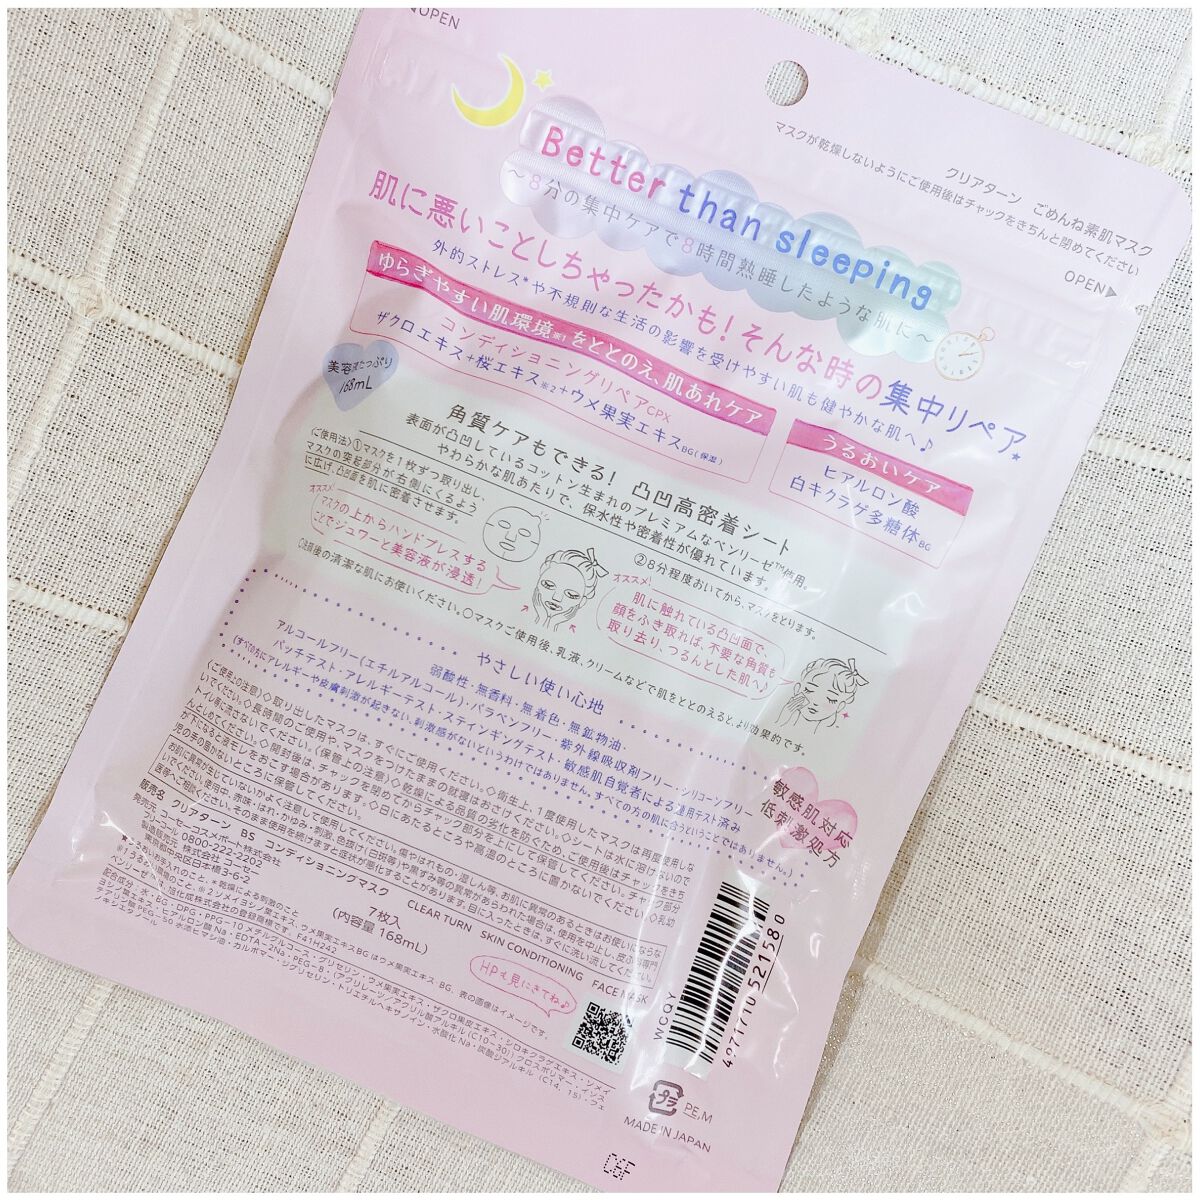 OPEN
クリアターン ごめんね素肌マスク
マスクが乾燥しないようにご使用後はチャックをきちんと閉めてください
OPEN▶
Better than sleeping
〜8分の集中ケアで8時間熟睡したような肌に〜
肌に悪いことしちゃったかも!そんな時の集中リペア*
外的ストレス*や不規則な生活の影響を受けやすい肌も健やかな肌へ♪
ゆらぎやすい肌環境※1をととのえ、肌あれケア
コンディショニングリペアCPX
ザクロエキス+桜エキス※2+ウメ果実エキスBG(保湿)
うるおいケア
ヒアルロン酸
白キクラゲ多糖体BG
美容液たっぷり
168mL
角質ケアもできる! 凸凹高密着シート
表面が凸凹しているコットン生まれのプレミアムなベンリーゼ™使用。
やわらかな肌あたりで、保水性や密着性が優れています。
〈ご使用法〉①マスクを1枚ずつ取り出し、
マスクの突起部分が右側にくるよう
に広げ、凸凹面を肌に密着させます。
オススメ!
マスクの上からハンドプレスする
ことでジュワーと美容液が浸透!
②8分程度おいてから、マスクをとります。
オススメ!
肌に触れている凸凹面で、
顔をふき取れば、不要な角質も
取り去り、つるんとした肌へ♪
○洗顔後の清潔な肌にお使いください。○マスクご使用後、乳液、クリームなどで肌をととのえると、より効果的です。
やさしい使い心地
弱酸性・無香料・無着色・無鉱物油・
アルコールフリー(エチルアルコール)・パラベンフリー・紫外線吸収剤フリー・シリコーンフリー
パッチテスト・アレルギーテスト・スティンギングテスト・敏感肌自覚者による連用テスト済み
(すべての方にアレルギーや皮膚刺激が起きない、刺激感がないというわけではありません。すべての方の肌に合うということではありません。)
敏感肌対応
低刺激処方
〈ご使用上の注意〉◇取り出したマスクは、すぐにご使用ください。◇衛生上、1度使用したマスクは再度使用しな
いでください。◇長時間のご使用や、マスクをつけたままの就寝はおさけください。◇シートは水に溶けないので
トイレ等に流さないでください。〈保管上の注意〉◇乾燥による品質の劣化を防ぐため、ご使用後はチャックをきち
んとしめてください。◇開封後は、チャックを閉めてからチャック部分を上にして保管してください。チャック部分
が下になると液モレをおこす場合があります。◇日にあたるところや高温のところに置かないでください。◇乳幼
児の手の届かないところに保管してください。
販売名 クリアターン BS コンディショニングマスク
発売元 コーセーコスメポート株式会社
フリーコール 0800-222-2202
製造販売元 株式会社 コーセー
東京都中央区日本橋3-6-2
7枚入
(内容量 168mL)
CLEAR TURN SKIN CONDITIONING FACE MASK
HPも見にきてね♪
wcaY
4971710521580
プラ
PE,M
MADE IN JAPAN